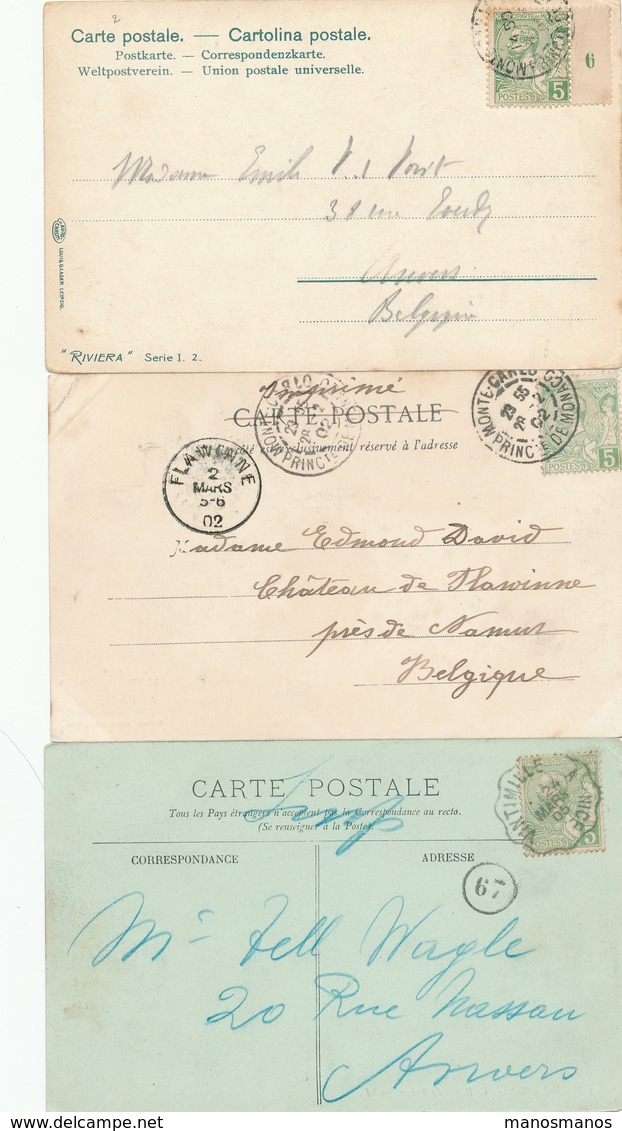 2
Carte postale. — Cartolina postale.
Postkarte. — Correspondenzkarte.
Weltpostverein. — Union postale universelle.
5
POSTES
6
Madame Emile
38 rue
Anvers
Belgique
LOUIS GLASER LEIPZIG.
"RIVIERA" Serie I. 2.
Imprimé
MONTE-CARLO
23 55
28 -2
02
PRINCTÉ DE MONACO
CARTE POSTALE
Côté exclusivement réservé à l'adresse
POSTES 5
FLAWINNE
2
MARS
5-6
02
Madame Edmond David
Château de Flawinne
près de Namur
Belgique
CARTE POSTALE
Tous les Pays étrangers n'acceptent pas la Correspondance au recto.
(Se renseigner à la Poste).
Imp
VINTIMILLE A NICE
MARS
POSTES 5
CORRESPONDANCE
ADRESSE
67
Mr Fell Wagle
20 Rue Nassau
Anvers
manosmanos